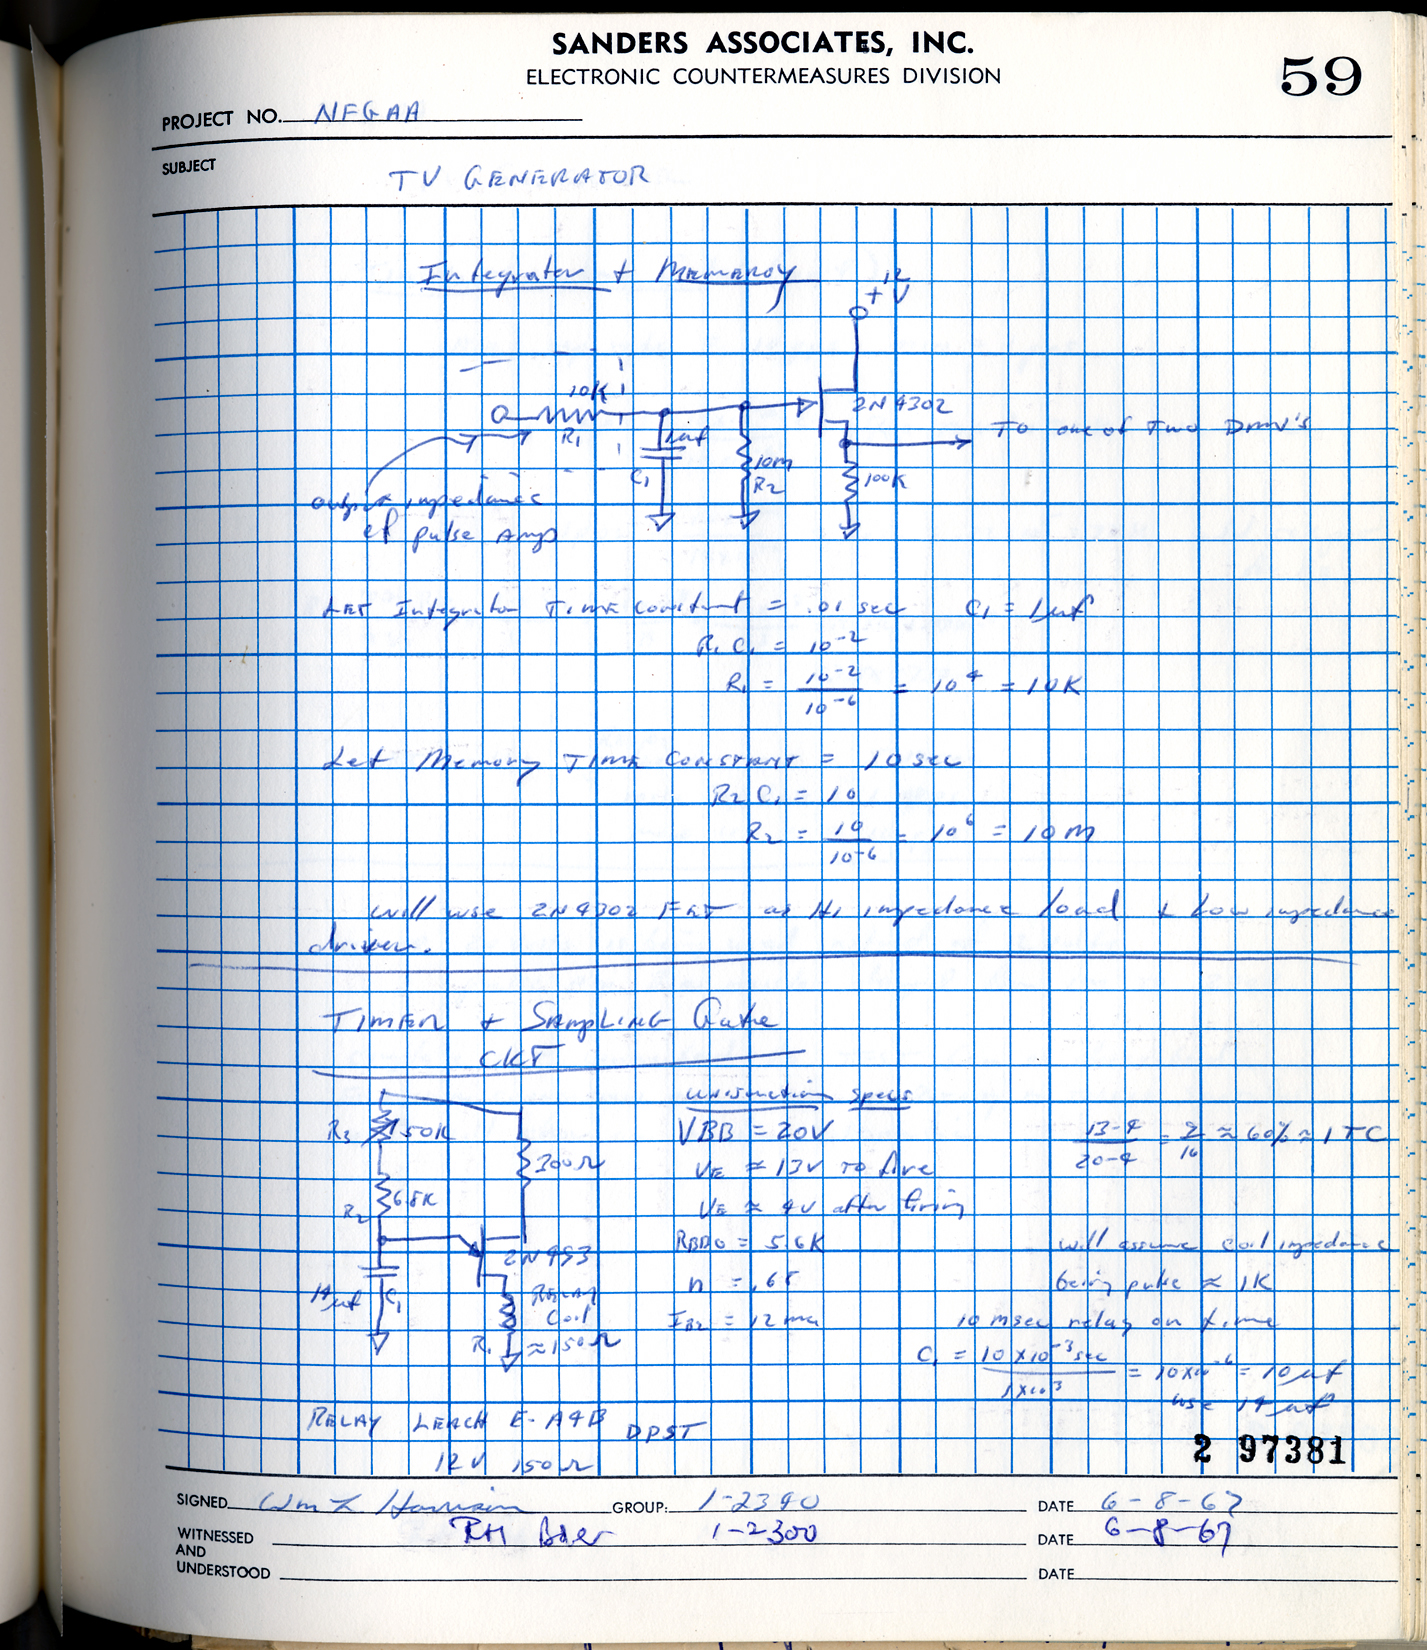 SANDERS ASSOCIATES, INC.
ELECTRONIC COUNTERMEASURES DIVISION
59
PROJECT NO. NFGAA
SUBJECT
TV GENERATOR
Integrator + Memeroy
+12 V
10K
R1
1uf
C1
10M
R2
2N4302
100K
To one of Two DMV's
output impedance
of pulse Amp
LET Integrator TIME constant = .01 sec C1 = 1uf
R1 C1 = 10-2
R1 = 10-2 / 10-6 = 10 4 = 10K
Let Memory TIME CONSTANT = 10 sec
R2 C1 = 10
R2 = 10 / 10-6 = 10 6 = 10 M
Will use 2N4302 FET as Hi impedance load + Low impedance
driver.
TIMER + SAMPLING Gate
CKT
R3 50K
300Ω
R2 6.8K
2N493
14uf C1
RELAY
Coil
R1 ≈150Ω
Unijunction Specs
VBB = 20V
VE ≈ 13V to fire
VE ≈ 4V after firing
RBBO = 5.6K
n = .65
IB2 = 12 ma
13-4 / 20-4 = 9 / 16 ≈ 60% ≈ 1 TC
will assume coil impedance
being pulse ≈ 1K
10 msec relay on time
C1 = 10 x10-3 sec / 1x103 = 10x10-6 = 10 uf
use 14 uf
RELAY LEACH E-A4B DPST
12V 150Ω
2 97381
SIGNED Wm L Harrison GROUP: 1-2340 DATE 6-8-67
WITNESSED AND UNDERSTOOD RH Baer 1-2300 DATE 6-8-67
DATE